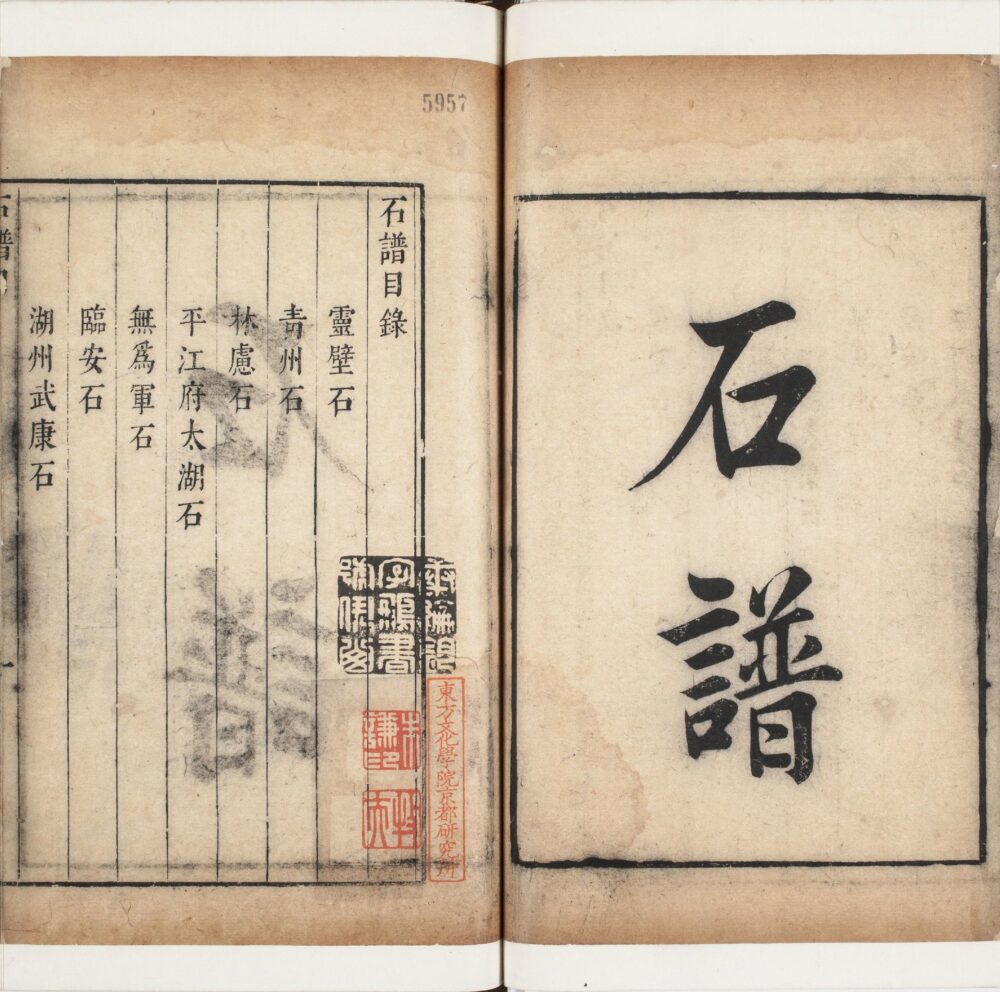 石譜
5957
石譜目錄
靈壁石
青州石
林慮石
平江府太湖石
無爲軍石
臨安石
湖州武康石
東方文化學院京都研究所